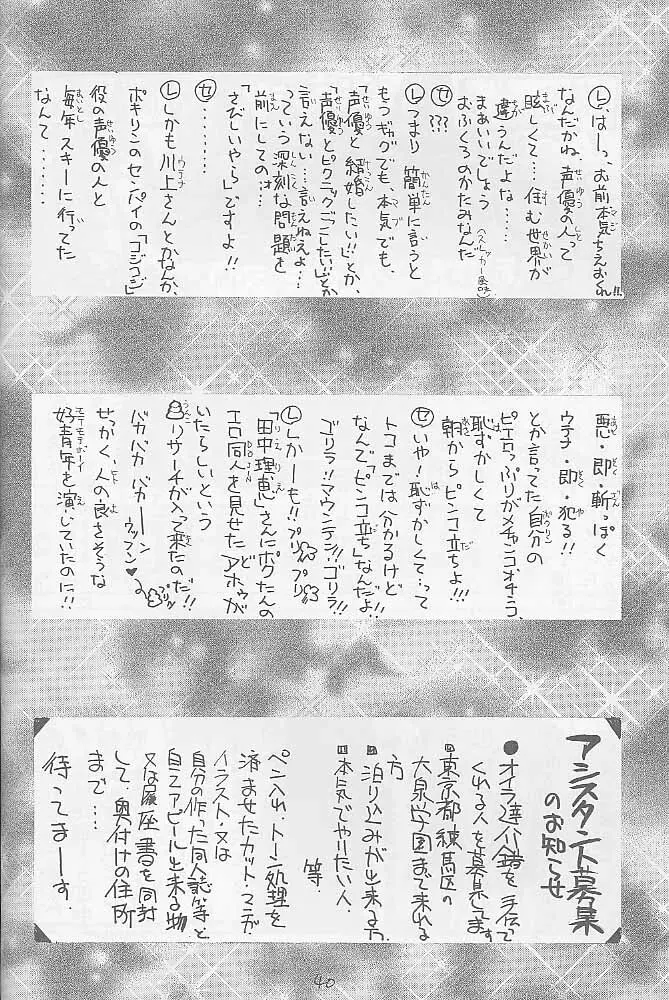 Ⓛ、はーっ、お前本気ちえおくれ!!
なんだかね、声優の人って
眩しくて…住む世界が
違うんだよな……
まあいいでしょう
おふくろのかたみなんだ
Ⓩ???
Ⓛつまり簡単に言うと
もつギャグでも、本気でも、
「声優と結婚したい!!」とか、
「声優とピクニックごにしたい!!」とか
言えない…言えねえよ…
っていう深刻な問題を
前にしての…
「さびしいやら」ですよ!!
Ⓩ……
Ⓛしかも川上さんとかなんか、
ポキリンのセンパイの「コジコジ」
役の声優の人と
毎年スキーに行ってた
なんて……
悪・即・斬っぽく
ウ子・即・犯る!!
とか言ってた自分の
ピエロっぷりがメチャンコオチつう、
恥ずかしくて
朝からピンコ立ちよ!!!
Ⓩいや!恥ずかしくて…って
トコまでは分かるけど
なんで「ピンコ立ち」なんだよ!!
ゴリラ!!マウンテン!!ゴリラ!!
Ⓛしかーも!!プリプリ
「田中理恵」さんにポクたんの
エロ同人を見せたアホゥが
いたらしいという
リサーチが入って来たのだ!!
バカバカバカーン
ウッフン♥
せっかく、人の良さそうな
好青年を演じていたのに!!
アシスタント募集
のお知らせ
●オイラ達が錆を手伝って
くれる人を募集してます
■東京都練馬区の
大泉学園まで来れる
方
■泊り込みが出来る方
■本気でやりたい人、
等
ペン入れ、トーン処理を
済ませたカット・マンガ
イラスト・又は
自分の作った同人誌等と
自己アピール出来る物
又は履歴書を同封
して、奥付けの住所
まで…
待ってまーす。
40